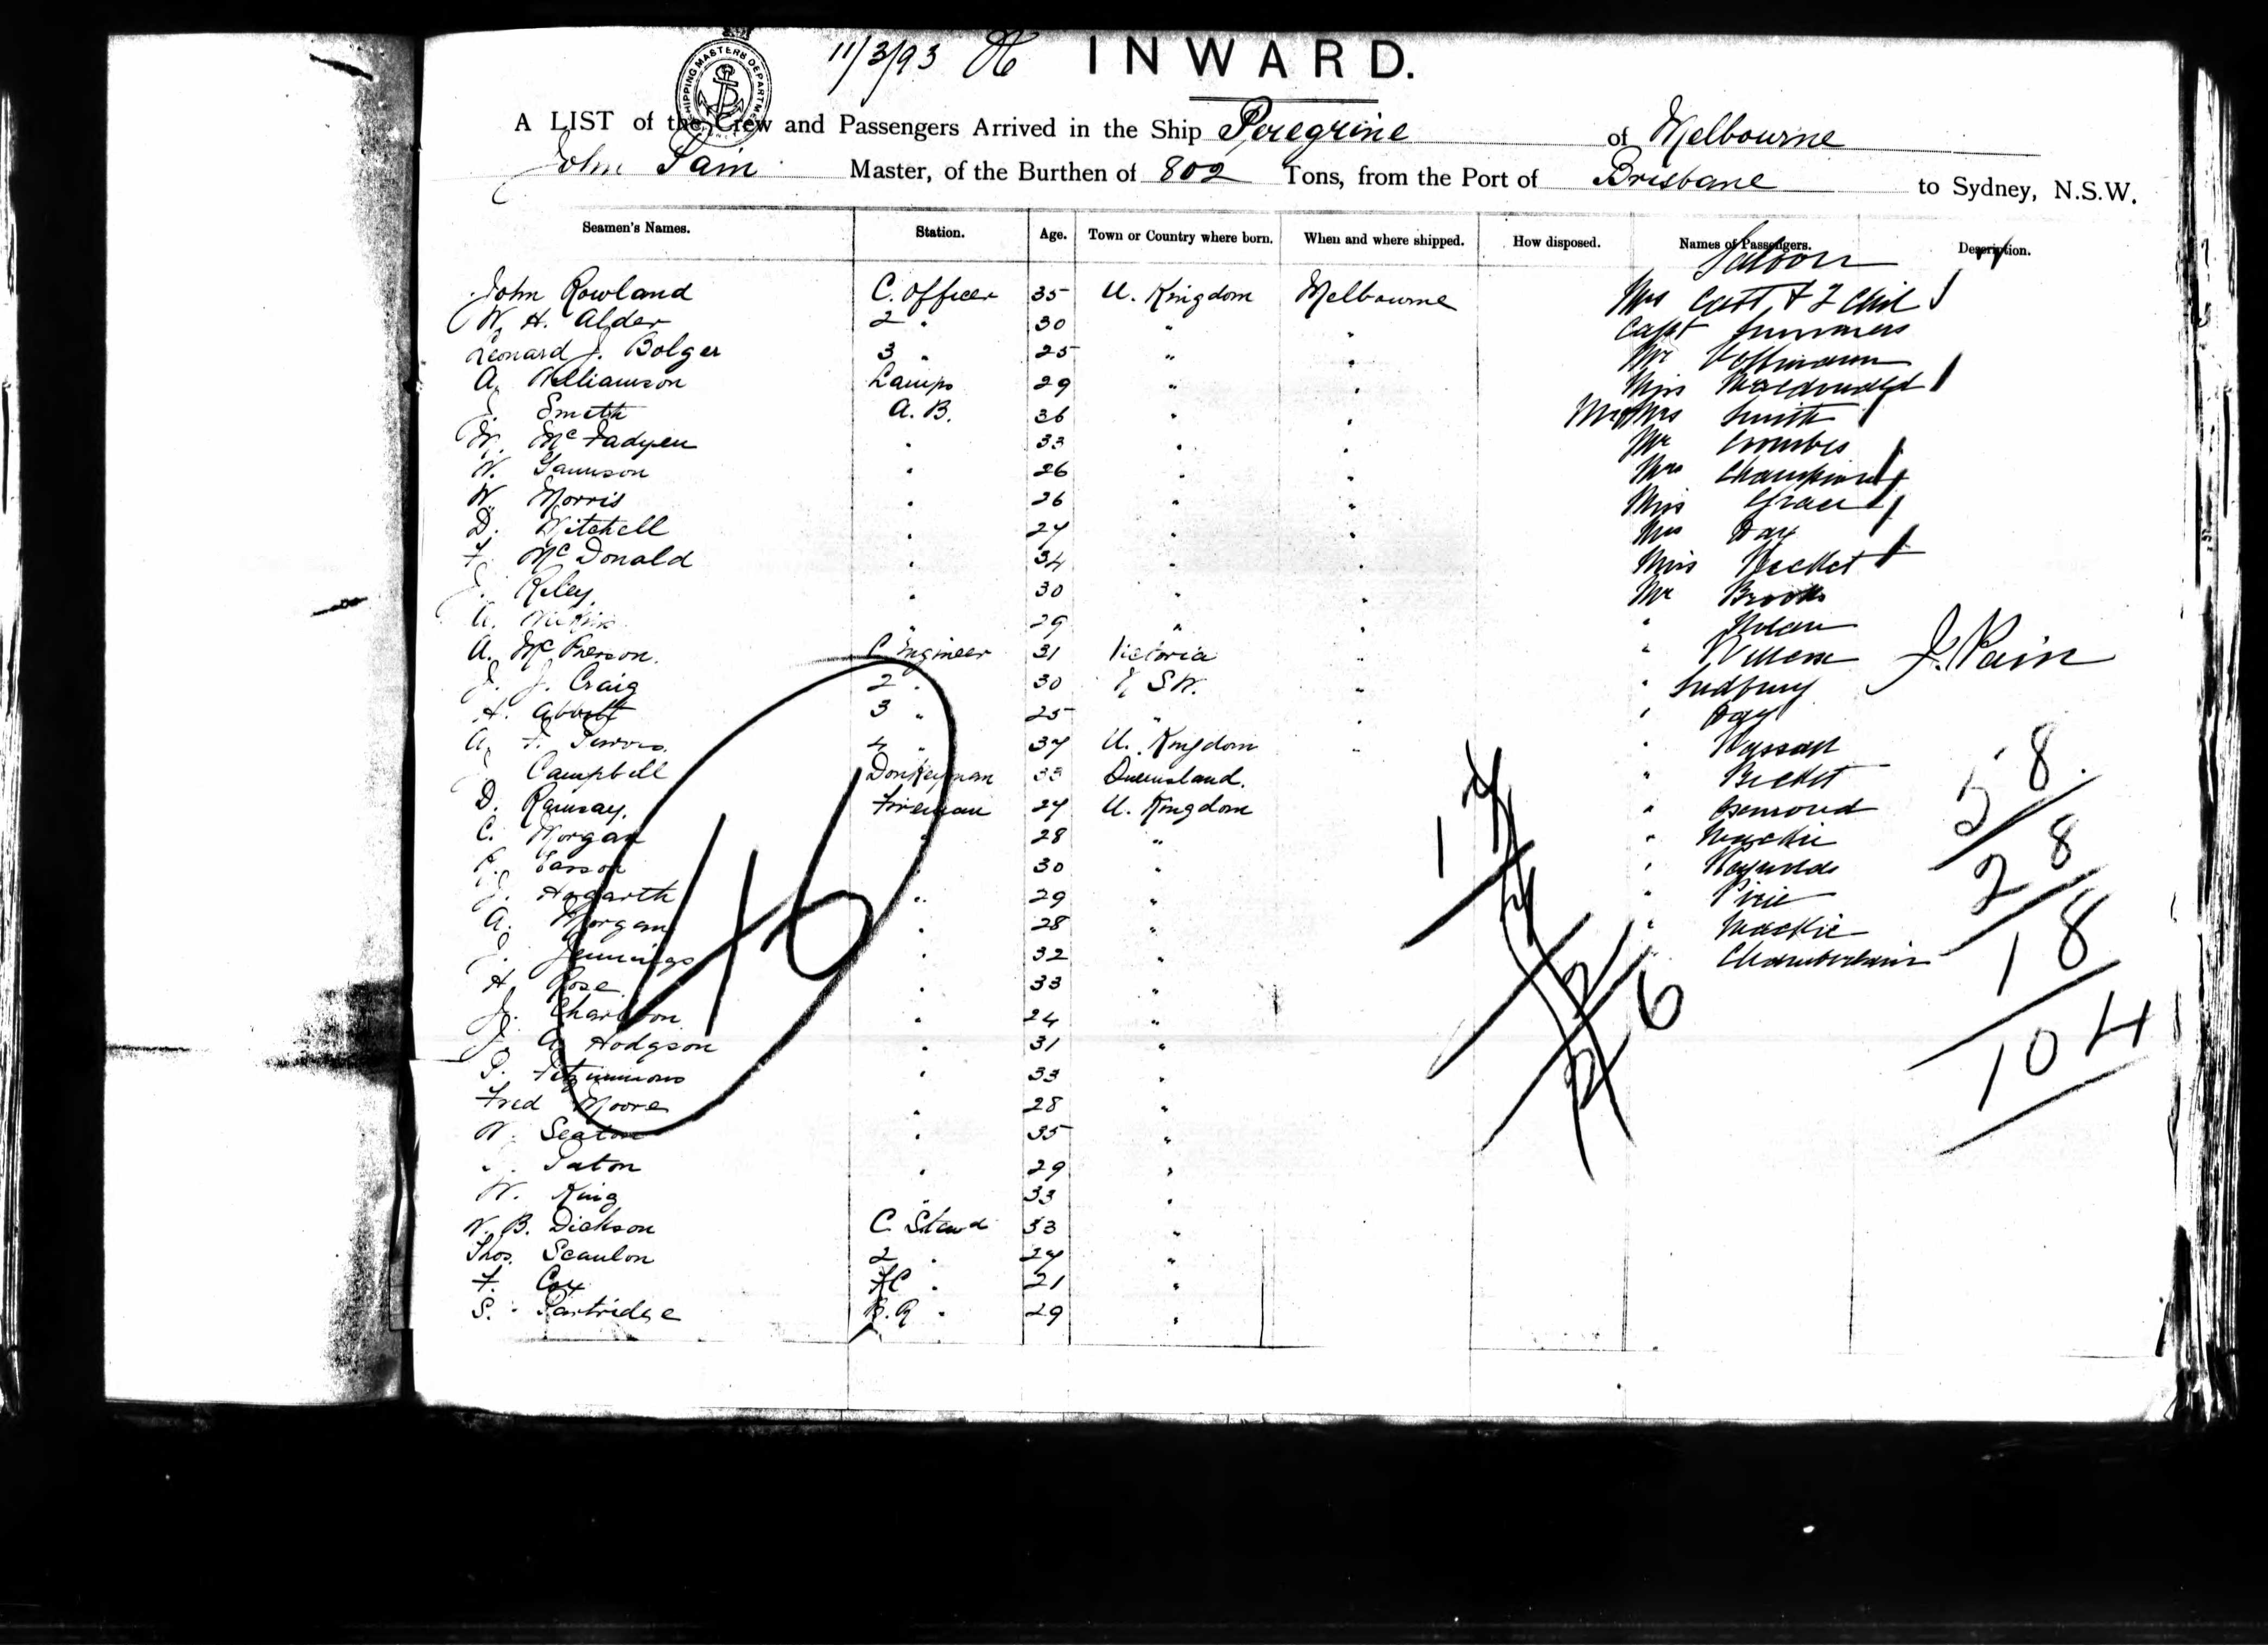 11/3/93
INWARD.
SHIPPING MASTERS DEPARTMENT
A LIST of the Crew and Passengers Arrived in the Ship Peregrine of Melbourne
John Pain Master, of the Burthen of 802 Tons, from the Port of Brisbane to Sydney, N.S.W.
Seamen's Names. Station. Age. Town or Country where born. When and where shipped. How disposed. Names of Passengers. Description.
Saloon
John Rowland C. Officer 35 U. Kingdom Melbourne Mrs &
W. H. Alder 2 " 30 " " Capt Summers
Leonard J. Bolger 3 " 25 " " Mr Hoffmann
A. Williamson Lamps 29 " " Miss
J. Smith A. B. 36 " " Mr & Mrs Smith
W. McFadyen " 33 " " Mr Coombes
W. " 26 " " Mrs Champion
W. Morris " 26 " " Miss Grace
D. Mitchell " 27 " " Mrs Day
F. McDonald " 34 " " Miss
J. Riley " 30 " " Mr Brooks
A. " 29 " " " Nolan
A. McPherson. C Engineer 31 Victoria " "
J. Pain
J. J. Craig 2 " 30 N S W. " " Sudbury
H. Abbott 3 " 25 " " " Day
A. F. 4 " 37 U. Kingdom " "
Campbell Donkeyman 33 Queensland. "
D. Ramsay. Fireman 27 U. Kingdom " Osmond
C. Morgan " 28 " " Mackie
30 " " Reynolds
J. Hogarth " 29 " " Pirie
A. Morgan " 28 " " Mackie
J. Jennings " 32 " " Chamberlain
H. Rose " 33 "
J. Charlton " 24 "
J. A. Hodgson " 31 "
P. Fitzsimmons " 33 "
Fred Moore " 28 "
W. Seaton " 35 "
Paton " 29 "
W. King " 33 "
W. B. Dickson C. Stewd 33 "
Thos. Scanlon 2 " 27 "
F. Cox " 21 "
S. Partridge " 29 "
46
17
26
58
28
18
104